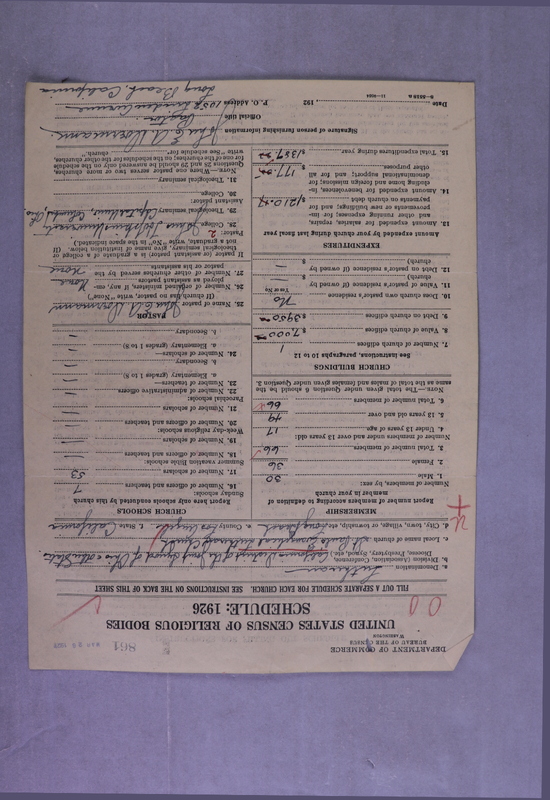 DEPARTMENT OF COMMERCE
BUREAU OF THE CENSUS
WASHINGTON
861
UNITED STATES CENSUS OF RELIGIOUS BODIES
SCHEDULE: 1926
FILL OUT A SEPARATE SCHEDULE FOR EACH CHURCH. SEE INSTRUCTIONS ON THE BACK OF THIS SHEET
a. Denomination Lutheran
b. Division (Association, Conference, Diocese, Presbytery, Synod, etc.) California District of the Joint Synod of Ohio & other States
c. Local name of church St. Pauls Evangelical Lutheran Church
d. City, town, village, or township, etc. Long Beach e. County Los Angeles f. State California
MEMBERSHIP
Report number of members according to definition of member in your church
Number of members, by sex:
1. Male 30
2. Female 36
3. Total number of members 66
Number of members under and over 13 years old:
4. Under 13 years of age 17
5. 13 years old and over 49
6. Total number of members 66
NOTE.—The total given under Question 6 should be the same as the total of males and females given under Question 3.
CHURCH BUILDINGS
See instructions, paragraphs 10 to 12
7. Number of church edifices 1
8. Value of church edifices $ 7,000.00
9. Debt on church edifices $ 3950.00
10. Does church own pastor's residence No
Yes or No
11. Value of pastor's residence (if owned by church) $ —
12. Debt on pastor's residence (if owned by church) $ —
EXPENDITURES
Amount expended by your church during last fiscal year
13. Amount expended for salaries, repairs, and other running expenses; for improvements or new building; and for payments on church debt $
14. Amount expended for benevolences, including home and foreign missions; for denominational support; and for all other purposes $ 177.
15. Total expenditures during year $
CHURCH SCHOOLS
Report here only schools conducted by this church
Sunday schools:
16. Number of officers and teachers 7
17. Number of scholars 53
Summer vacation Bible schools:
18. Number of officers and teachers —
19. Number of scholars —
Week-day religious schools:
20. Number of officers and teachers —
21. Number of scholars —
Parochial schools:
22. Number of administrative officers —
23. Number of teachers—
a. Elementary (grades 1 to 8) —
b. Secondary —
24. Number of scholars—
a. Elementary (grades 1 to 8) —
b. Secondary —
PASTOR
25. Name of pastor
(If church has no pastor, write "None")
26. Number of ordained ministers, if any, employed as assistant pastors None
27. Number of other churches served by the pastor or his assistants None
If pastor (or assistant pastor) is a graduate of a college or theological seminary, give name of institution below. (If not a graduate, write "No" in the space intended.)
Pastor: 2
28. College
29. Theological seminary Capital Univ. Columbus, Ohio
Assistant pastor:
30. College
31. Theological seminary
NOTE.—Where one pastor serves two or more churches, Questions 28 and 29 should be answered only on the schedule for one of the churches; on the schedules for the other churches, write "See schedule for church."
Signature of person furnishing information
Official title Pastor.
P. O. Address
Long Beach, California
Date , 192
8—5518 a